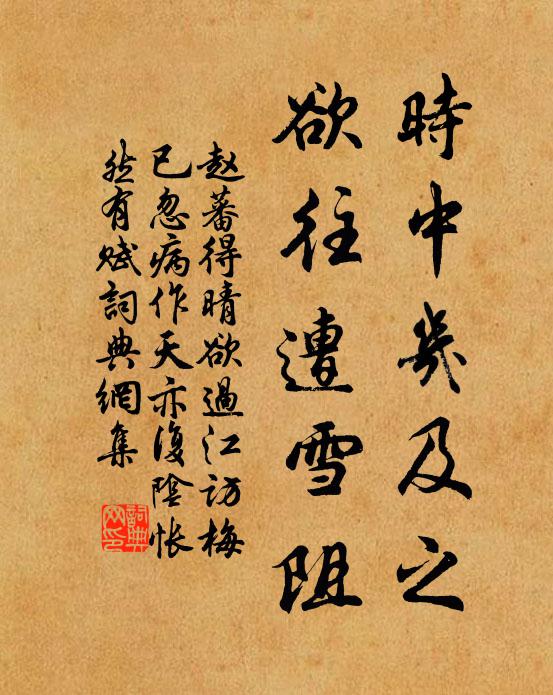 時中幾及之
欲往遭雪阻
赵蕃得晴欲過江訪梅
已忽病作天亦復陰悵
然有赋詞典網集
詞典
网